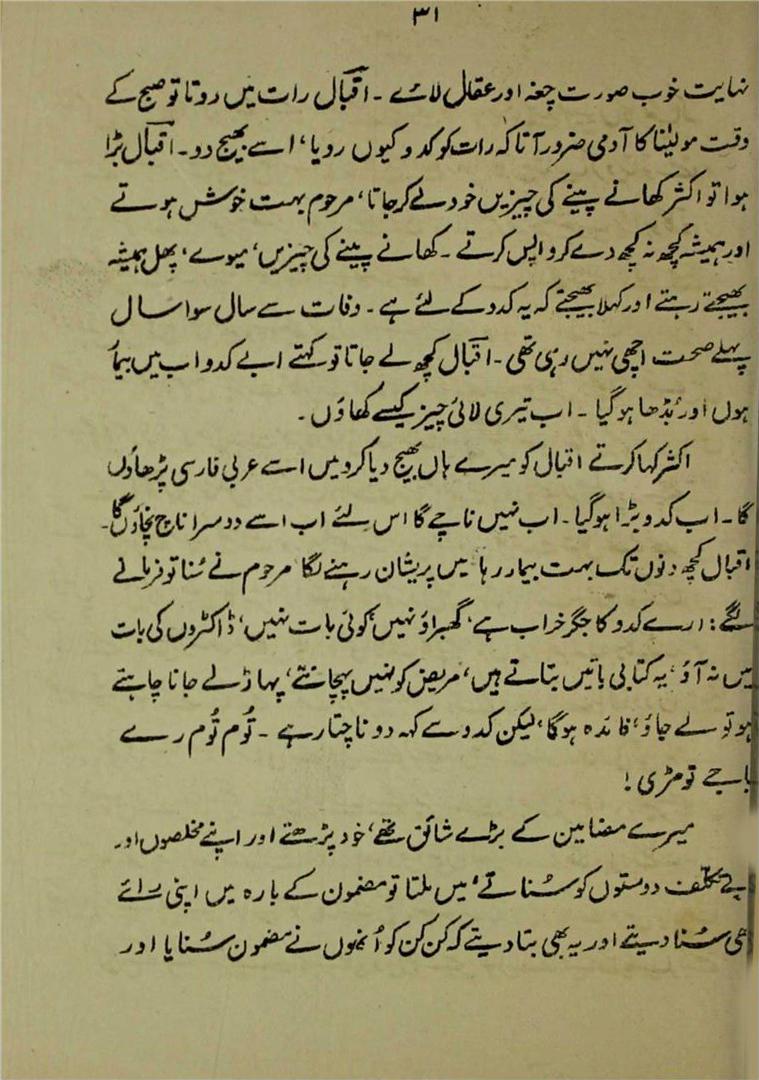 ۳۱
نہایت خوب صورت چغہ اور عقال لائے ۔ اقبال رات میں روتا تو صبح کے
وقت مولیٰنا کا آدمی ضرور آتا کہ رات کو کدو کیوں رویا، اسے بھیج دو۔ اقبال بڑا
ہوا تو اکثر کھانے پینے کی چیزیں خود لے کر جاتا، مرحوم بہت خوش ہوتے
اور ہمیشہ کچھ نہ کچھ دے کر واپس کرتے ۔ کھانے پینے کی چیزیں، میوے، پھل ہمیشہ
بھیجتے رہتے اور کہلا بھیجتے کہ یہ کدو کے لئے ہے ۔ وفات سے سال سوا سال
پہلے صحت اچھی نہیں رہی تھی ۔ اقبال کچھ لے جاتا تو کہتے ابے کدو اب میں بیمار
ہوں اور بُڈھا ہو گیا ۔ اب تیری لائی چیز کیسے کھاؤں ۔
اکثر کہا کرتے اقبال کو میرے ہاں بھیج دیا کرو میں اسے عربی فارسی پڑھاؤں
گا ۔ اب کدو بڑا ہو گیا ۔ اب نہیں ناچے گا اس لئے اب اسے دوسرا ناچ نچاؤں گا ۔
اقبال کچھ دنوں تک بہت بیمار رہا میں پریشان رہنے لگا مرحوم نے سُنا تو فرمانے
لگے : ارے کدو کا جگر خراب ہے، گھبراؤ نہیں، کوئی بات نہیں، ڈاکٹروں کی بات
میں نہ آؤ، یہ کتابی باتیں بتاتے ہیں، مریض کو نہیں پہچانتے، پہاڑ لے جانا چاہتے
ہو تو لے جاؤ، فائدہ ہوگا، لیکن کدو سے کہہ دو ناچتا رہے ۔ تُوم تُوم رے
باجے تومڑی !
میرے مضامین کے بڑے شائق تھے، خود پڑھتے اور اپنے مخلصوں اور
بے تکلف دوستوں کو سُناتے، میں ملتا تو مضمون کے بارہ میں اپنی رائے
بھی سُنا دیتے اور یہ بھی بتا دیتے کہ کن کن کو اُنھوں نے مضمون سُنایا اور